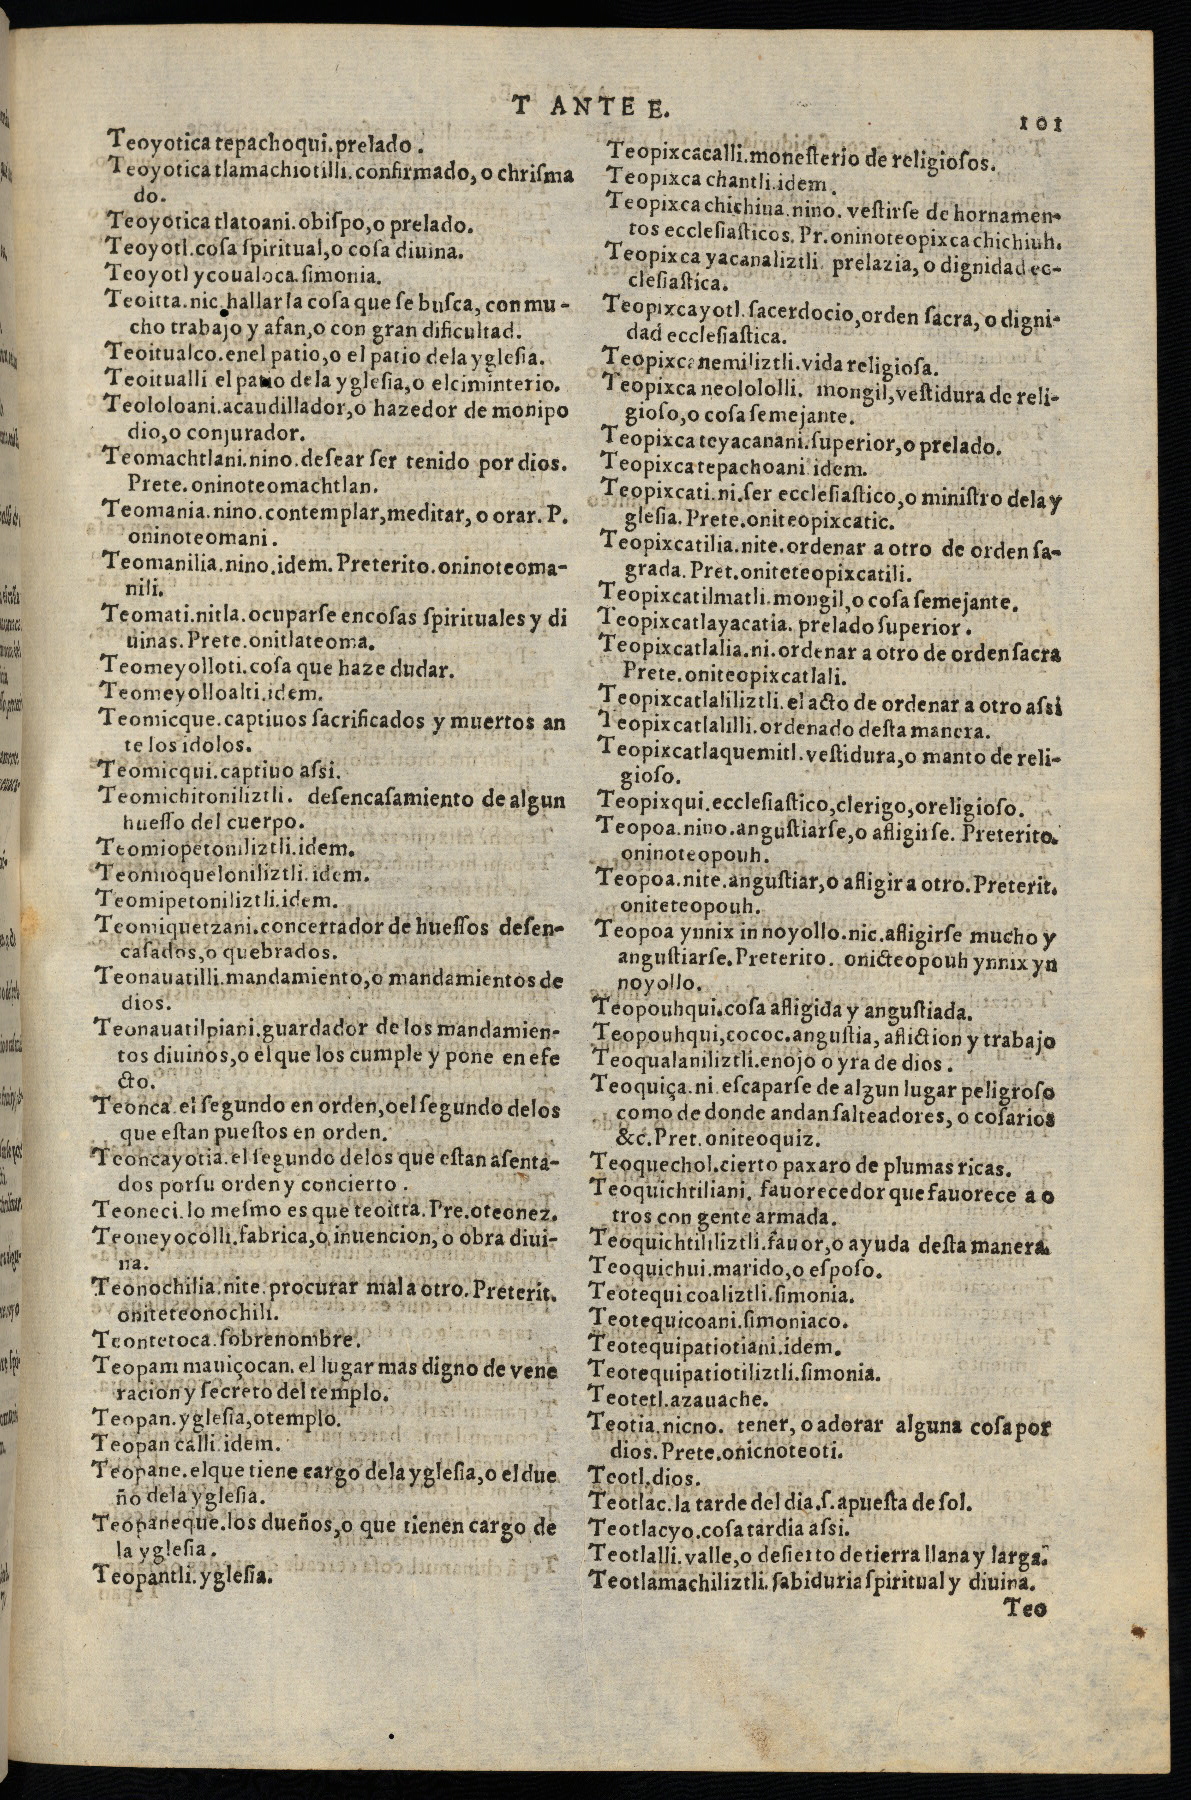 T ANTE E.
101
Teoyotica tepachoqui.prelado.
Teoyotica tlamachiotilli.confirmado,o chriſma
do.
Teoyotica tlatoani.obiſpo,o prelado.
Teoyotl.coſa ſpiritual,o coſa diuina.
Teoyotl ycoualoca.ſimonia.
Teoitta.nic.hallar la coſa que ſe buſca, con mu-
cho trabajo y afan,o con gran dificultad.
Teoitualco.enel patio,o el patio dela ygleſia.
Teoitualli el patio de la ygleſia,o elciminterio.
Teololoani.acaudillador,o hazedor de monipo
dio,o conjurador.
Teomachtlani.nino.deſear ſer tenido por dios.
Prete.oninoteomachtlan.
Teomania.nino.contemplar,meditar, o orar. P.
oninoteomani.
Teomanilia.nino.idem. Preterito.oninoteoma-
nili.
Teomati.nitla.ocuparſe encoſas ſpirituales y di
uinas. Prete.onitlateoma.
Teomeyolloti.coſa que haze dudar.
Teomeyolloalti.idem.
Teomicque.captiuos ſacrificados y muertos an
te los idolos.
Teomicqui.captiuo aſsi.
Teomichitoniliztli. deſencaſamiento de algun
hueſſo del cuerpo.
Teomiopetoniliztli.idem.
Teomioqueloniliztli.idem.
Teomipetoniliztli.idem.
Teomiquetzani.concertador de hueſſos deſen-
caſados,o quebrados.
Teonauatilli.mandamiento,o mandamientos de
dios.
Teonauatilpiani.guardador de los mandamien-
tos diuinos,o el que los cumple y pone en efe
cto.
Teonca.el ſegundo en orden,oel ſegundo delos
que eſtan pueſtos en orden.
Teoncayotia.el ſegundo delos que eſtan aſenta-
dos porſu orden y concierto.
Teoneci.lo meſmo es que teoitta.Pre.oteonez.
Teoneyocolli.fabrica,o inuencion, o obra diui-
na.
Teonochilia.nite.procurar mal a otro. Preterit.
oniteteonochili.
Teontetoca.ſobrenombre.
Teopam mauiçocan.el lugar mas digno de vene
racion y ſecreto del templo.
Teopan.ygleſia,otemplo.
Teopan calli.idem.
Teopane.elque tiene cargo dela ygleſia,o el due
ño dela ygleſia.
Teopaneque.los dueños,o que tienen cargo de
la ygleſia.
Teopantli.ygleſia.
Teopixcacalli.moneſterio de religioſos.
Teopixca chantli.idem.
Teopixca chichiua.nino. veſtirſe de hornamen-
tos eccleſiaſticos. Pr.oninoteopixca chichiuh.
Teopixca yacanaliztli. prelazia, o dignidad ec-
cleſiaſtica.
Teopixcayotl.ſacerdocio,orden ſacra, o digni-
dad eccleſiaſtica.
Teopixca nemiliztli.vida religioſa.
Teopixca neolololli. mongil,veſtidura de reli-
gioſo,o coſa ſemejante.
Teopixca teyacanani.ſuperior,o prelado.
Teopixca tepachoani idem.
Teopixcati.ni.ſer eccleſiaſtico,o miniſtro dela y
gleſia. Prete.oniteopixcatic.
Teopixcatilia.nite.ordenar a otro de orden ſa-
grada. Pret.oniteteopixcatili.
Teopixcatilmatli.mongil,o coſa ſemejante.
Teopixcatlayacatia. prelado ſuperior.
Teopixcatlalia.ni.ordenar a otro de orden ſacra
Prete.oniteopixcatlali.
Teopixcatlaliliztli.el acto de ordenar a otro aſsi
Teopixcatlalilli.ordenado deſta manera.
Teopixcatlaquemitl.veſtidura,o manto de reli-
gioſo.
Teopixqui.eccleſiaſtico,clerigo,oreligioſo.
Teopoa.nino.anguſtiarſe,o afligirſe. Preterito.
oninoteopouh.
Teopoa.nite.anguſtiar,o afligir a otro.Preterit.
oniteteopouh.
Teopoa ynnix in noyollo.nic.afligirſe mucho y
anguſtiarſe.Preterito. onicteopouh ynnix yn
noyollo.
Teopouhqui.coſa afligida y anguſtiada.
Teopouhqui,cococ.anguſtia, afliction y trabajo
Teoqualaniliztli.enojo o yra de dios.
Teoquiça.ni.eſcaparſe de algun lugar peligroſo
como de donde andan ſalteadores, o coſarios
&c.Pret.oniteoquiz.
Teoquechol.cierto paxaro de plumas ricas.
Teoquichtiliani. fauorecedor que fauorece a o
tros con gente armada.
Teoquichtililiztli.fauor,o ayuda deſta manera.
Teoquichui.marido,o eſpoſo.
Teotequicoaliztli.ſimonia.
Teotequicoani.ſimoniaco.
Teotequipatiotiani.idem.
Teotequipatiotiliztli.ſimonia.
Teotetl.azauache.
Teotia.nicno. tener, o adorar alguna coſa por
dios. Prete.onicnoteoti.
Teotl.dios.
Teotlac.la tarde del dia.ſ.apueſta de ſol.
Teotlacyo.coſa tardia aſsi.
Teotlalli.valle,o deſierto de tierra llana y larga.
Teotlamachiliztli.ſabiduria ſpiritual y diuina.
Teo